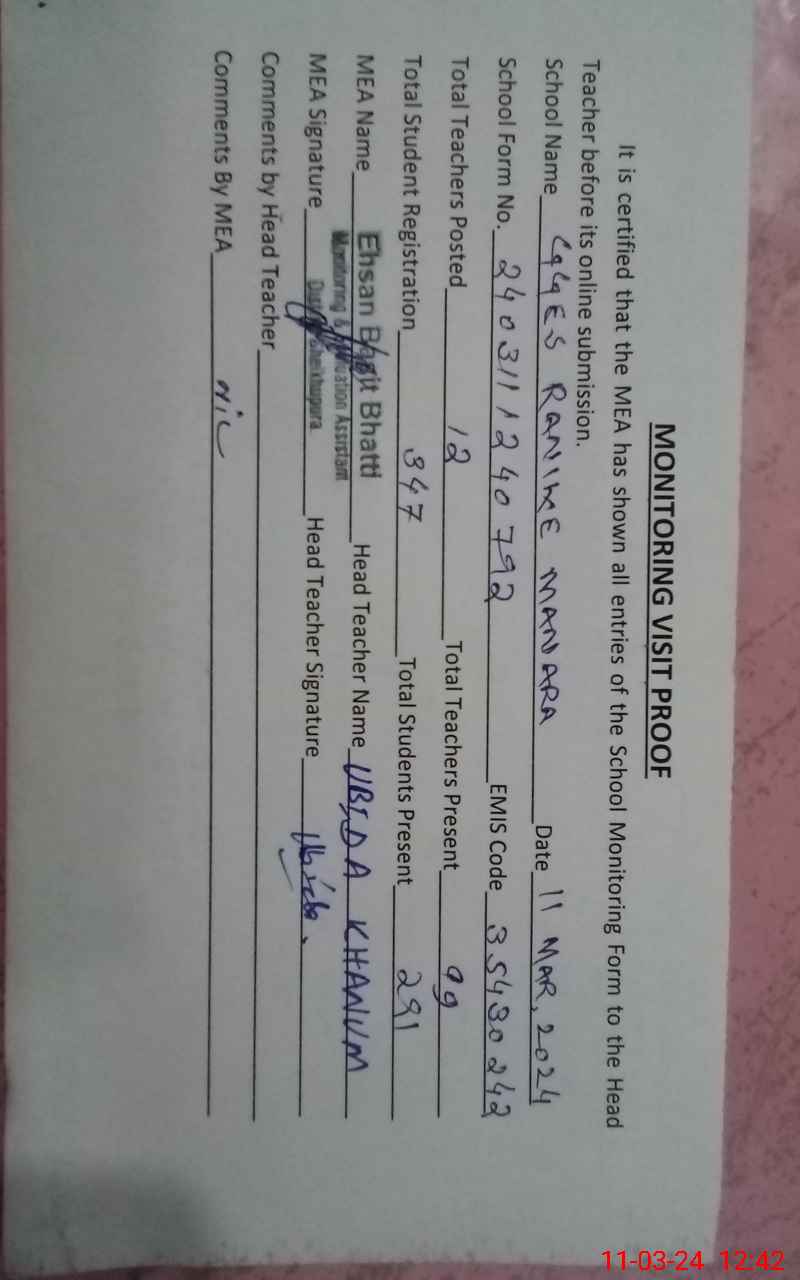 MONITORING VISIT PROOF
It is certified that the MEA has shown all entries of the School Monitoring Form to the Head
Teacher before its online submission.
School Name GGES RANIKE MANARA Date 11 MAR, 2024
School Form No. 240311 1240792 EMIS Code 35430242
Total Teachers Posted 12 Total Teachers Present 09
Total Student Registration 347 Total Students Present 291
MEA Name Ehsan Bhatti Head Teacher Name UBIDA KHANUM
Monitoring & Assistant
MEA Signature Sheikhupura Head Teacher Signature
Comments by Head Teacher
Comments By MEA NiL
11-03-24 12:42